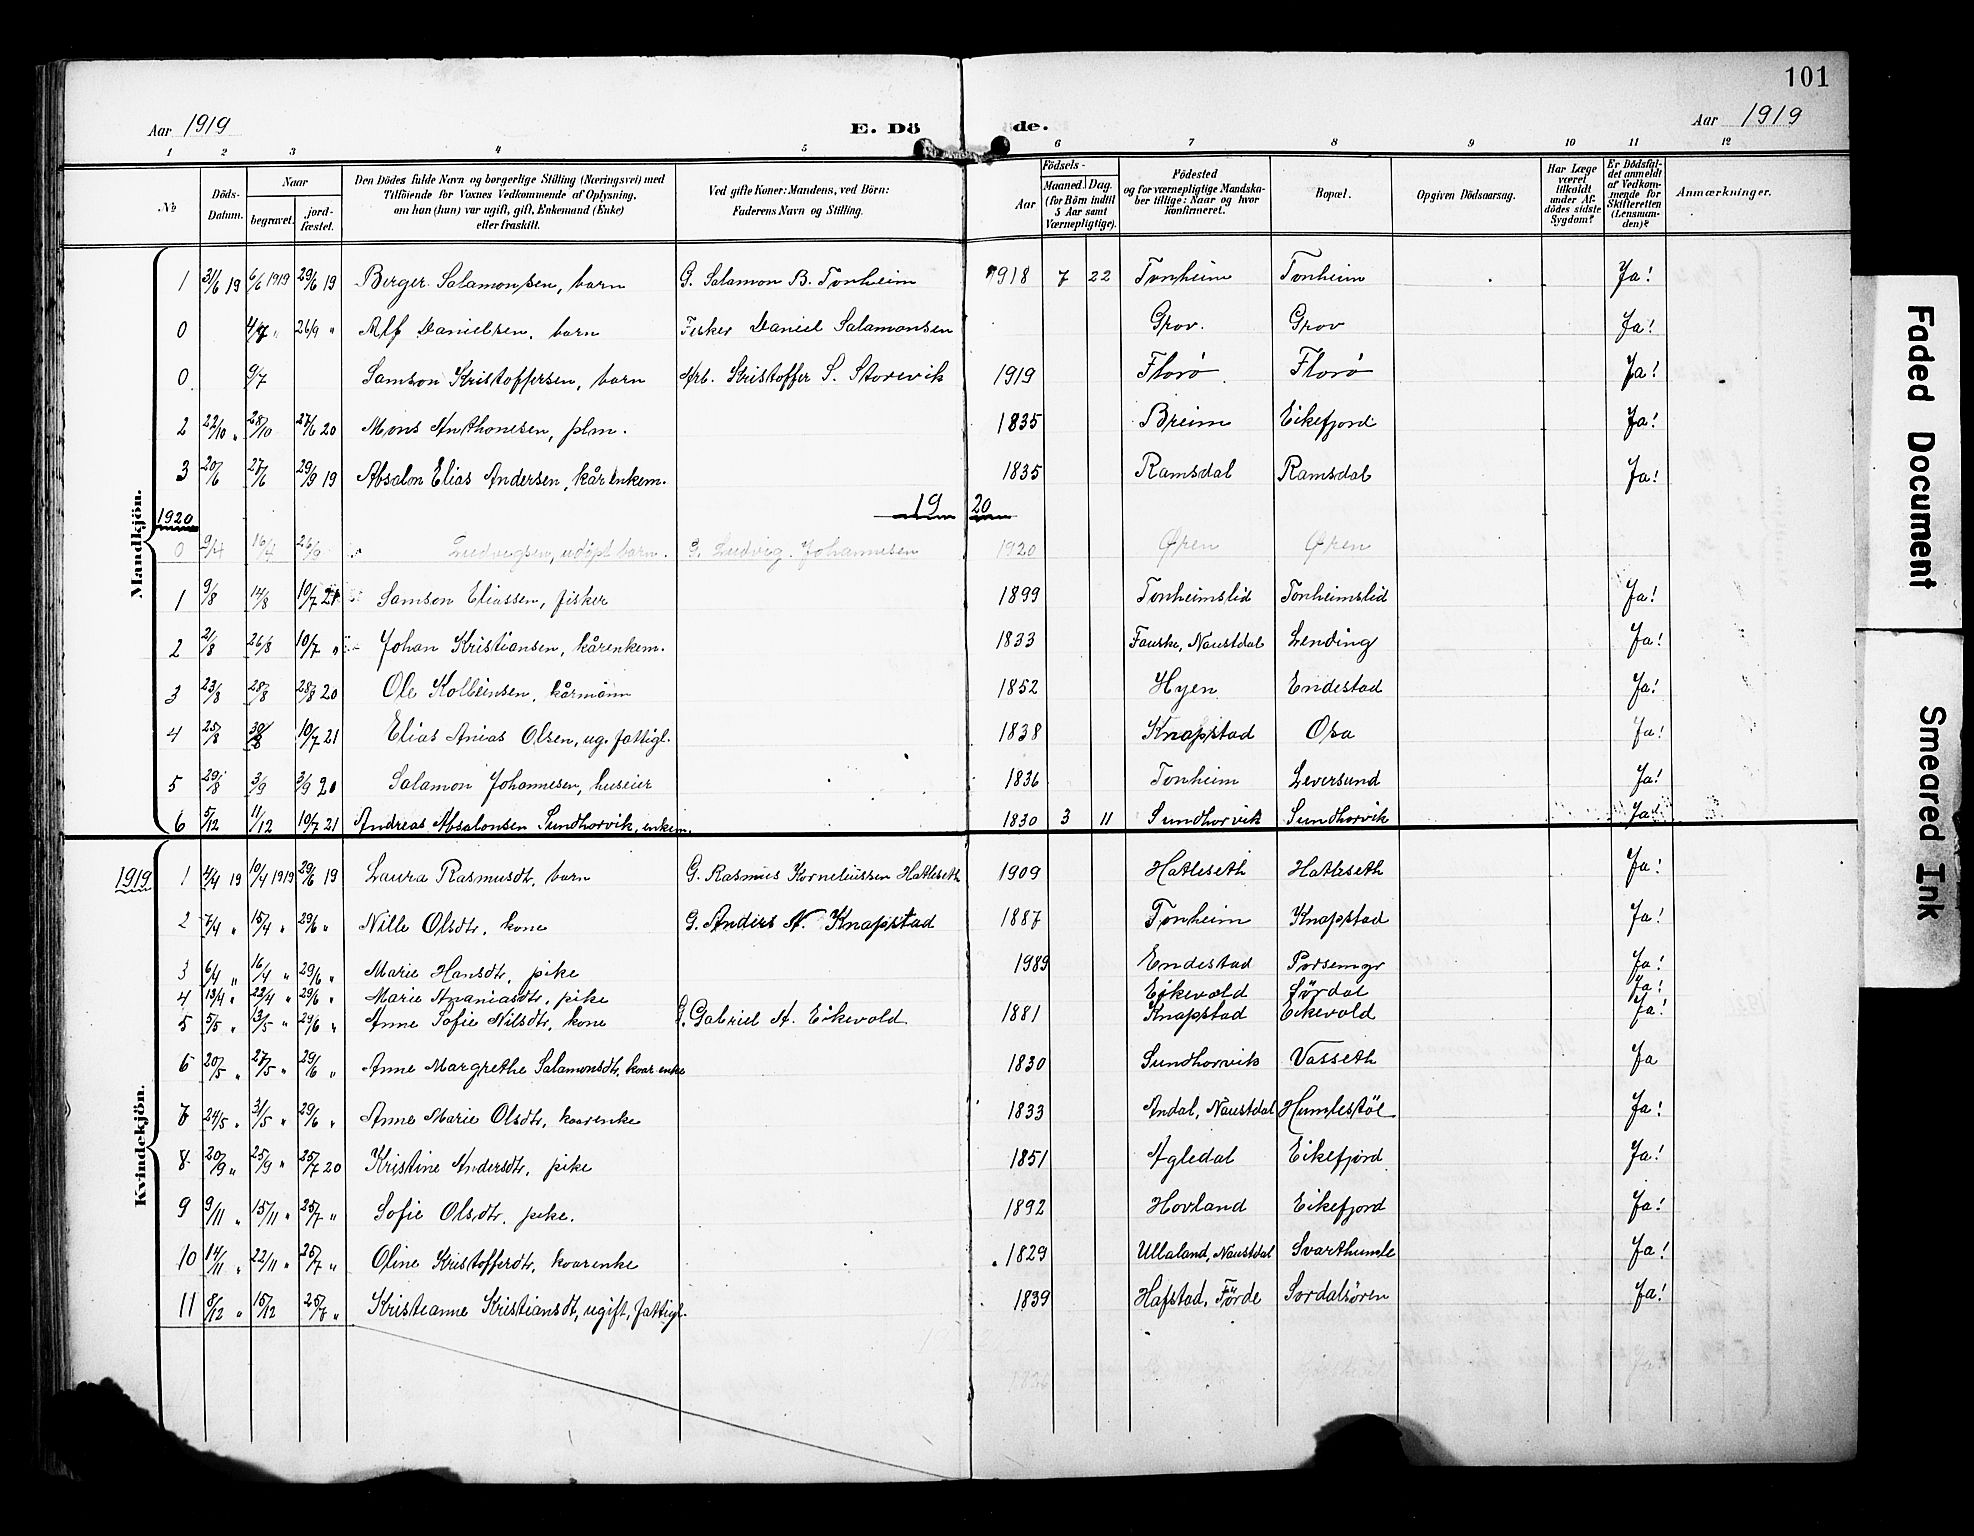 101
Aar 1919 E. Dö de. Aar 1919
1 2 3 4 5 6 7 8 9 10 11 12
No Döds-Datum. Naar begravet. jord-fæstet. Den Dödes fulde Navn og borgerlige Stilling (Næringsvei) med Tilföiende for Voxnes Vedkommende af Oplysning, om han (hun) var ugift, gift, Enkemand (Enke) eller fraskilt. Ved gifte Koner: Mandens, ved Börn: Faderens Navn og Stilling. Födsels- Aar Maaned. Dag. (for Börn indtil 5 Aar samt Værnepligtige). Födested og for værnepligtige Mandskaber tillige: Naar og hvor konfirmeret. Bopæl. Opgiven Dödsaarsag. Har Læge været tilkaldt under Afdödes sidste Sygdom? Er Dödsfaldet anmeldt af Vedkommende for Skifteretten (Lensmanden)? Anmærkninger.
Mandkjön.
1 31/6 19 6/6 1919 29/6 19 Birger Salamonsen, barn G. Salamon B. Tonheim 1918 7 22 Tonheim Tonheim Ja!
0 4/7 " 26/9 " Alf Danielsen, barn Fisker Daniel Salamonsen Grov. Grov Ja!
0. 9/7 Samson Kristoffersen, barn Arb. Kristoffer S. Storevik 1919 Florø Florø Ja!
2 22/10 " 28/10 27/6 20 Mons Anthonesen, plm. 1835 Breim Eikefjord Ja!
3 20/6 27/6 29/9 19 Absalon Elias Andersen, kårenkem. 1835 Ramsdal Ramsdal Ja!
1920 19 20
0 9/4 16/4 26/6 Ludvigsen, udöpt barn. G. Ludvig Johannesen 1920 Øren Øren
1 9/8 14/8 10/7 21 Samson Eliassen, fisker 1899 Tonheimslid Tonheimslid Ja!
2 2/8 26/8 10/7 " Johan Kristiansen, kårenkem. 1833 Fauske, Naustdal Lending Ja!
3 23/8 28/8 28/8 20 Ole Kolbeinsen, kårmann 1852 Hyen Endestad Ja!
4 25/8 30/8 10/7 21 Elias Anias Olsen, ug. fattigl. 1838 Knapstad Osa Ja!
5 29/8 3/9 3/9 20 Salamon Johannesen, huseier 1836 Tonheim Leversund Ja!
6 5/12 11/12 10/7 21 Andreas Absalonsen Sundhorvik, enkem. 1830 3 11 Sundhorvik Sundhorvik Ja!
Kvindekjön.
1919 1 4/4 19 10/4 1919 29/6 19 Laura Rasmusdt. barn G. Rasmus Korneliussen Hatleseth 1909 Hatleseth Hatleseth Ja!
2 7/4 " 15/4 " 29/6 " Nille Olsdtr. kone G. Anders A. Knapstad 1887 Tonheim Knapstad Ja!
3 6/4 " 16/4 " 29/6 " Marie Hansdtr, pike 1989 Endestad Porsemyr Ja!
4 13/4 " 23/4 " 29/6 " Marie Ananiasdtr, pike Eikevold Sørdal Ja!
5 5/5 " 13/5 " 24/6 " Anne Sofie Nilsdtr, kone G. Gabriel A. Eikevold 1881 Knapstad Eikevold Ja!
6 20/5 " 27/5 " 29/6 " Anne Margrethe Salamonsdtr, kvarenke 1830 Sundhorvik Vasseth Ja
7 24/5 " 31/5 " 29/6 " Anne Marie Olsdtr, kaarenke 1833 Andal, Naustdal Humlestøl Ja!
8 20/9 " 25/9 " 25/7 20 Kristine Andersdtr, pike 1851 Agledal Eikefjord Ja!
9 9/11 " 15/11 " 25/7 " Sofie Olsdtr. pike. 1892 Hovland Eikefjord Ja!
10 14/11 " 22/11 " 25/7 " Oline Kristofferdtr, kaarenke 1829 Ullaland, Naustdal Svarthumle Ja!
11 8/12 " 15/12 25/7 " Kristianne Kristiansdt, ugift, fattigl. 1839 Hafstad, Förde Sordalsören Ja!
Faded Document
Smeared Ink